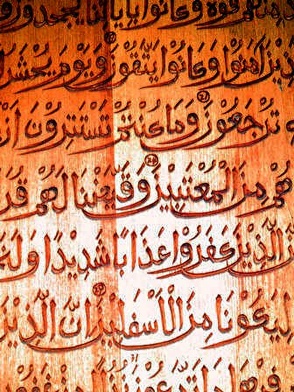 مِنْهُمْ قُوَّةً وَكَانُوا بِآيَاتِنَا يَجْحَدُونَ
الَّذِينَ آمَنُوا وَكَانُوا يَتَّقُونَ وَيَوْمَ يُحْشَرُ
تُرْجَعُونَ وَمَا كُنْتُمْ تَسْتَتِرُونَ أَنْ
هُمْ مِنَ الْمُعْتَبِينَ وَقَيَّضْنَا لَهُمْ قُرَ
الَّذِينَ كَفَرُوا عَذَابًا شَدِيدًا وَلَنَجْ
لِيَكُونَا مِنَ الْأَسْفَلِينَ إِنَّ الَّذِينَ
فِيهَا مَا تَدَّعُونَ